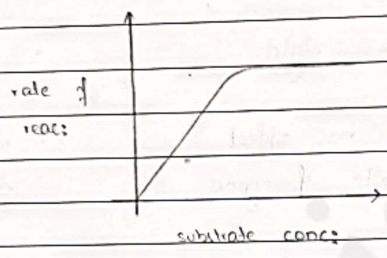 rate of
reac:
substrate conc: